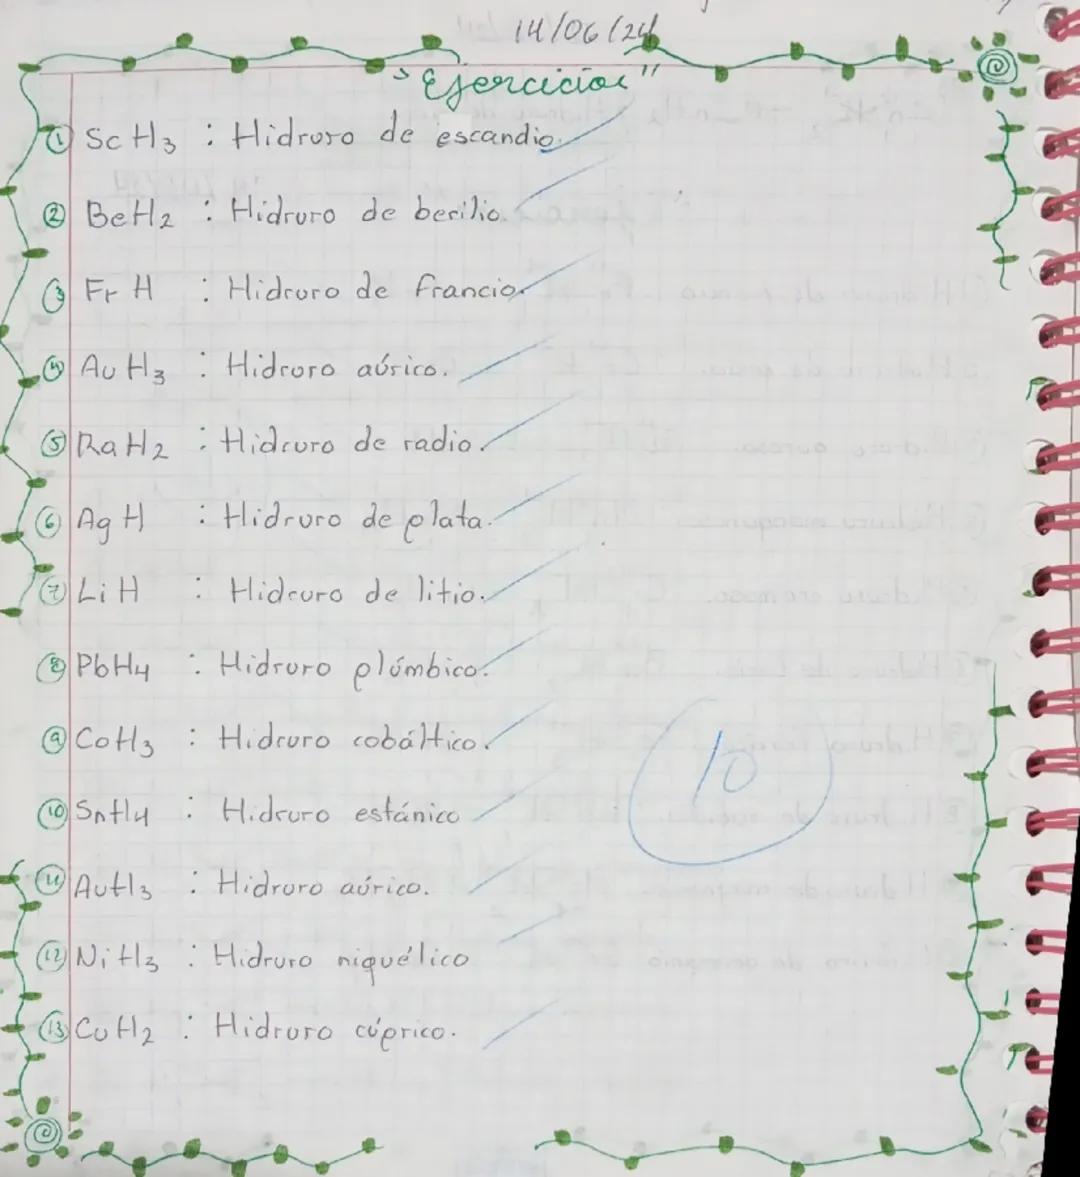 14/06/24
"Ejercicios"
① ScH3 : Hidruro de escandio.
② BeH2 : Hidruro de berilio.
③ FrH : Hidruro de francio.
④ AuH3 : Hidruro aúrico.
⑤ RaH2 : Hidruro de radio.
⑥ AgH : Hidruro de plata.
⑦ LiH : Hidruro de litio.
⑧ PbH4 : Hidruro plúmbico.
⑨ CoH3 : Hidruro cobáltico.
⑩ SnH4 : Hidruro estánico
⑪ AuH3 : Hidruro aúrico.
⑫ NiH3 : Hidruro niquélico
⑬ CuH2 : Hidruro cúprico.
10